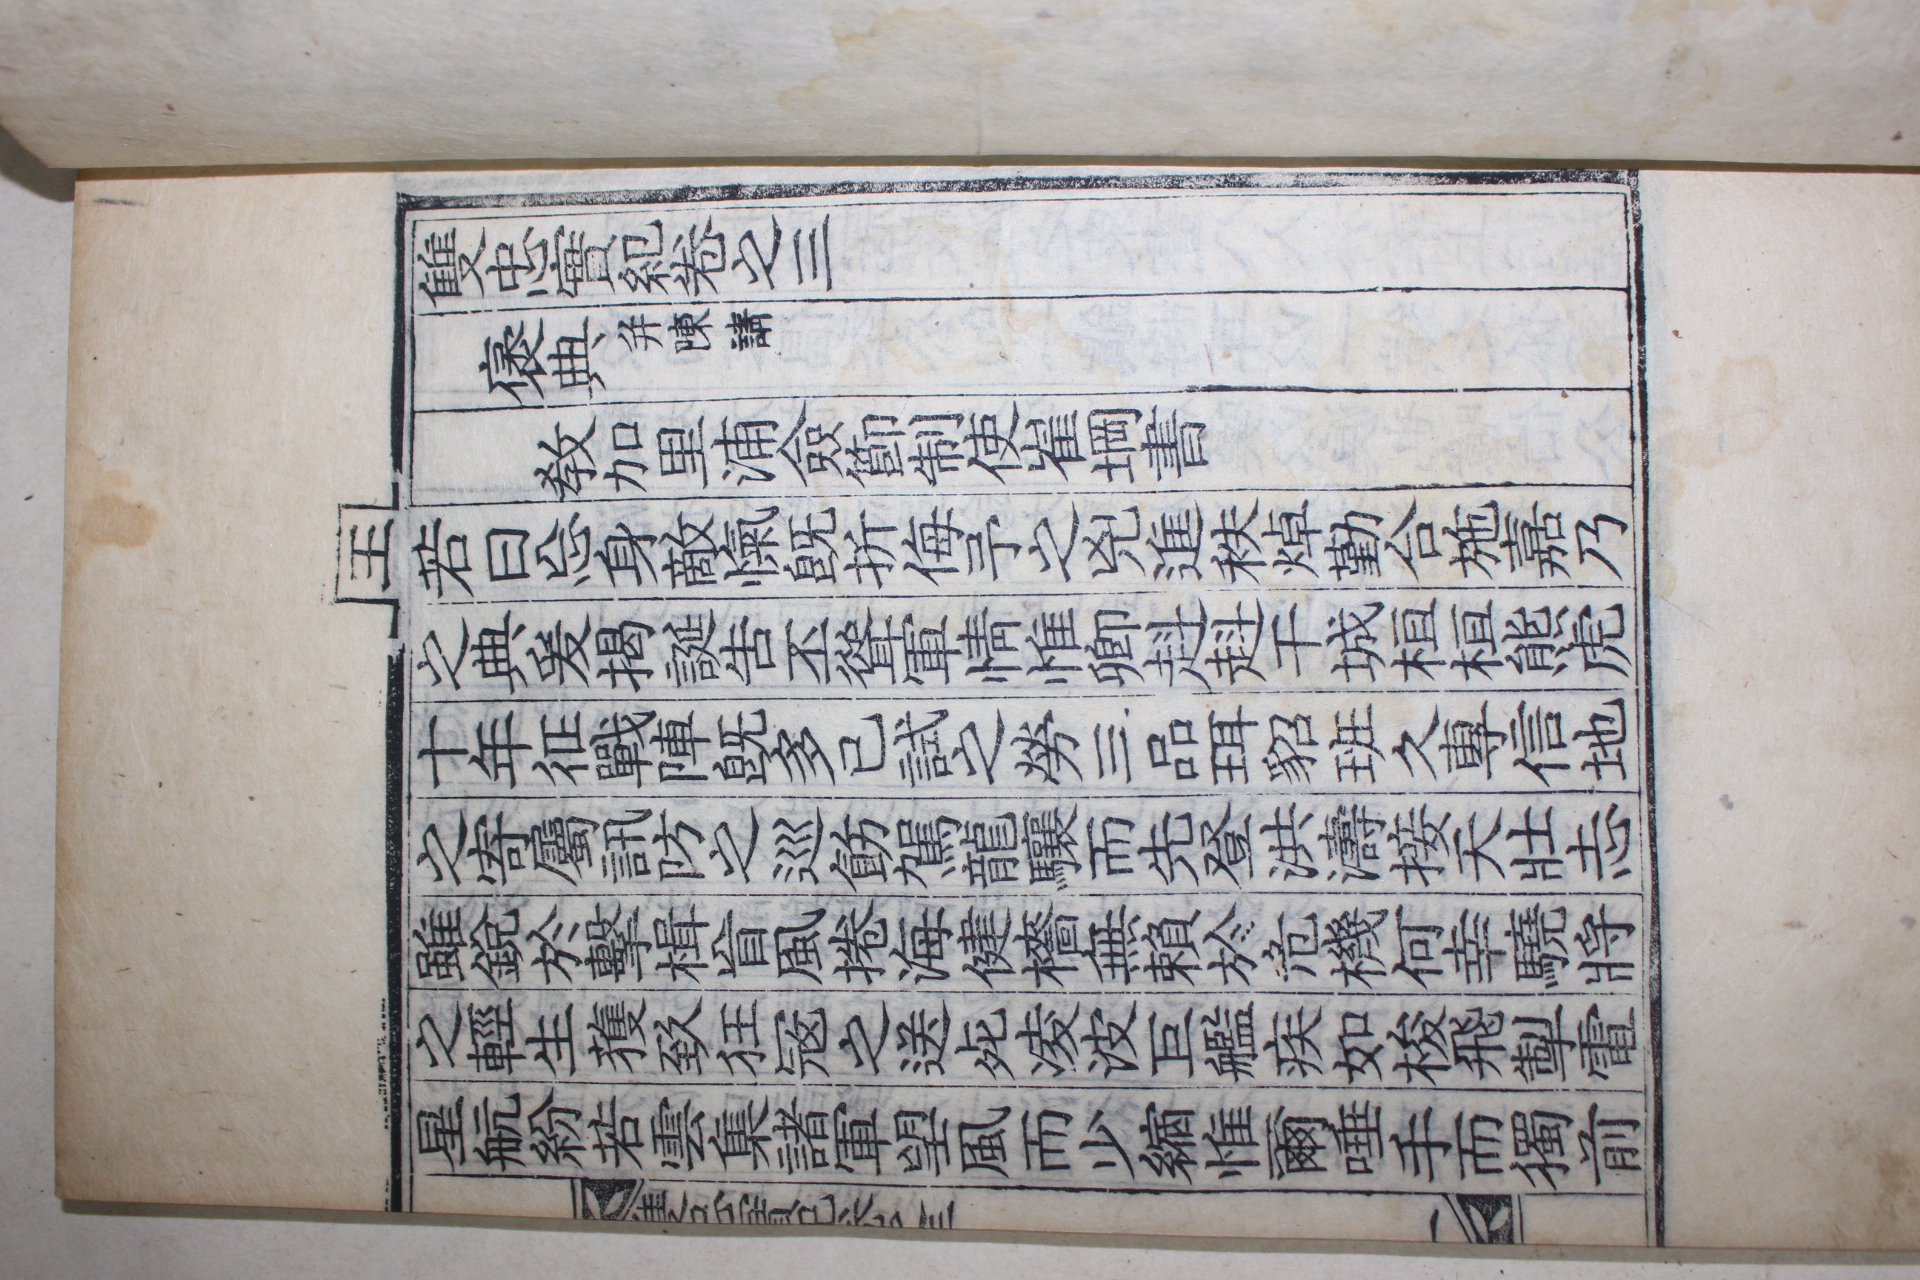 雙忠實紀卷之三
褒典 并陳請
敎加里浦僉節制使崔堈書
王
若曰忘身敵愾旣折侮予之兇進秩焯勤合施嘉乃
之典爰揭誕告丕聳軍情惟卿赳赳干城桓桓熊虎
十年征戰陣旣多已試之勞三品珥貂班久專信地
之寄屬訊防之巡飭駕龍驤而先登洪濤接天壯志
雖銳於擊楫盲風捲海健檣無賴於危機何幸驍將
之輕生獲致狂寇之送死凌波巨艦疾如梭飛掣電
星航紛若雲集諸軍望風而少縮惟爾唾手而獨前
雙忠實紀卷之三